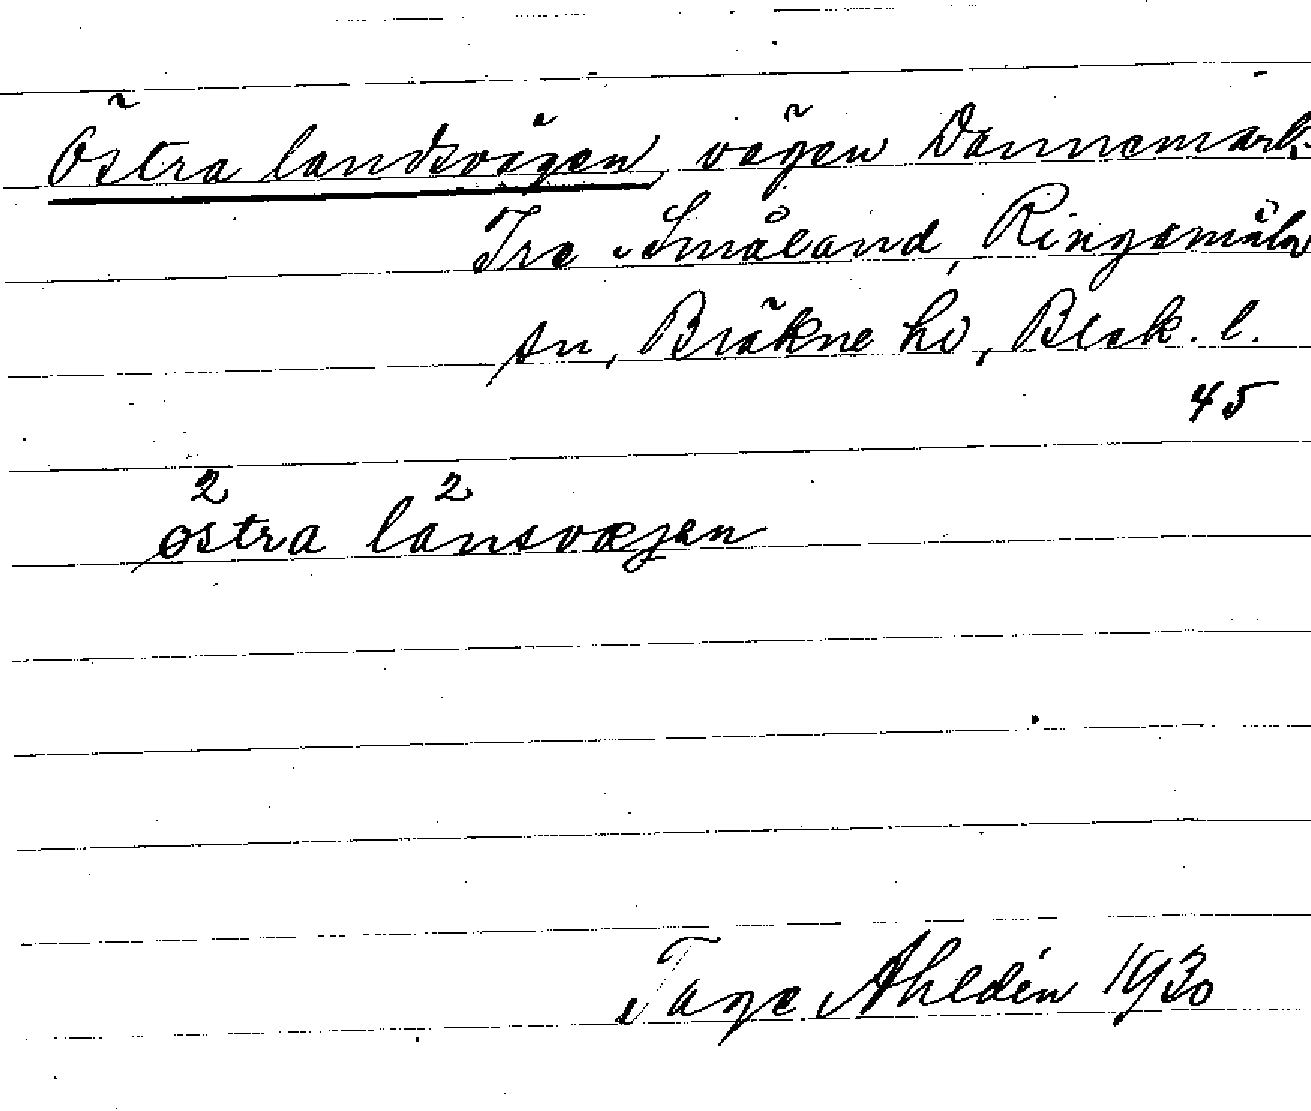 Östra landsvägen, vägen Dannemark-
Ire Småland, Ringamåla
sn, Bräkne hd, Blek. l.
45
2 2
østra lansvæjen
Tage Ahldén 1930